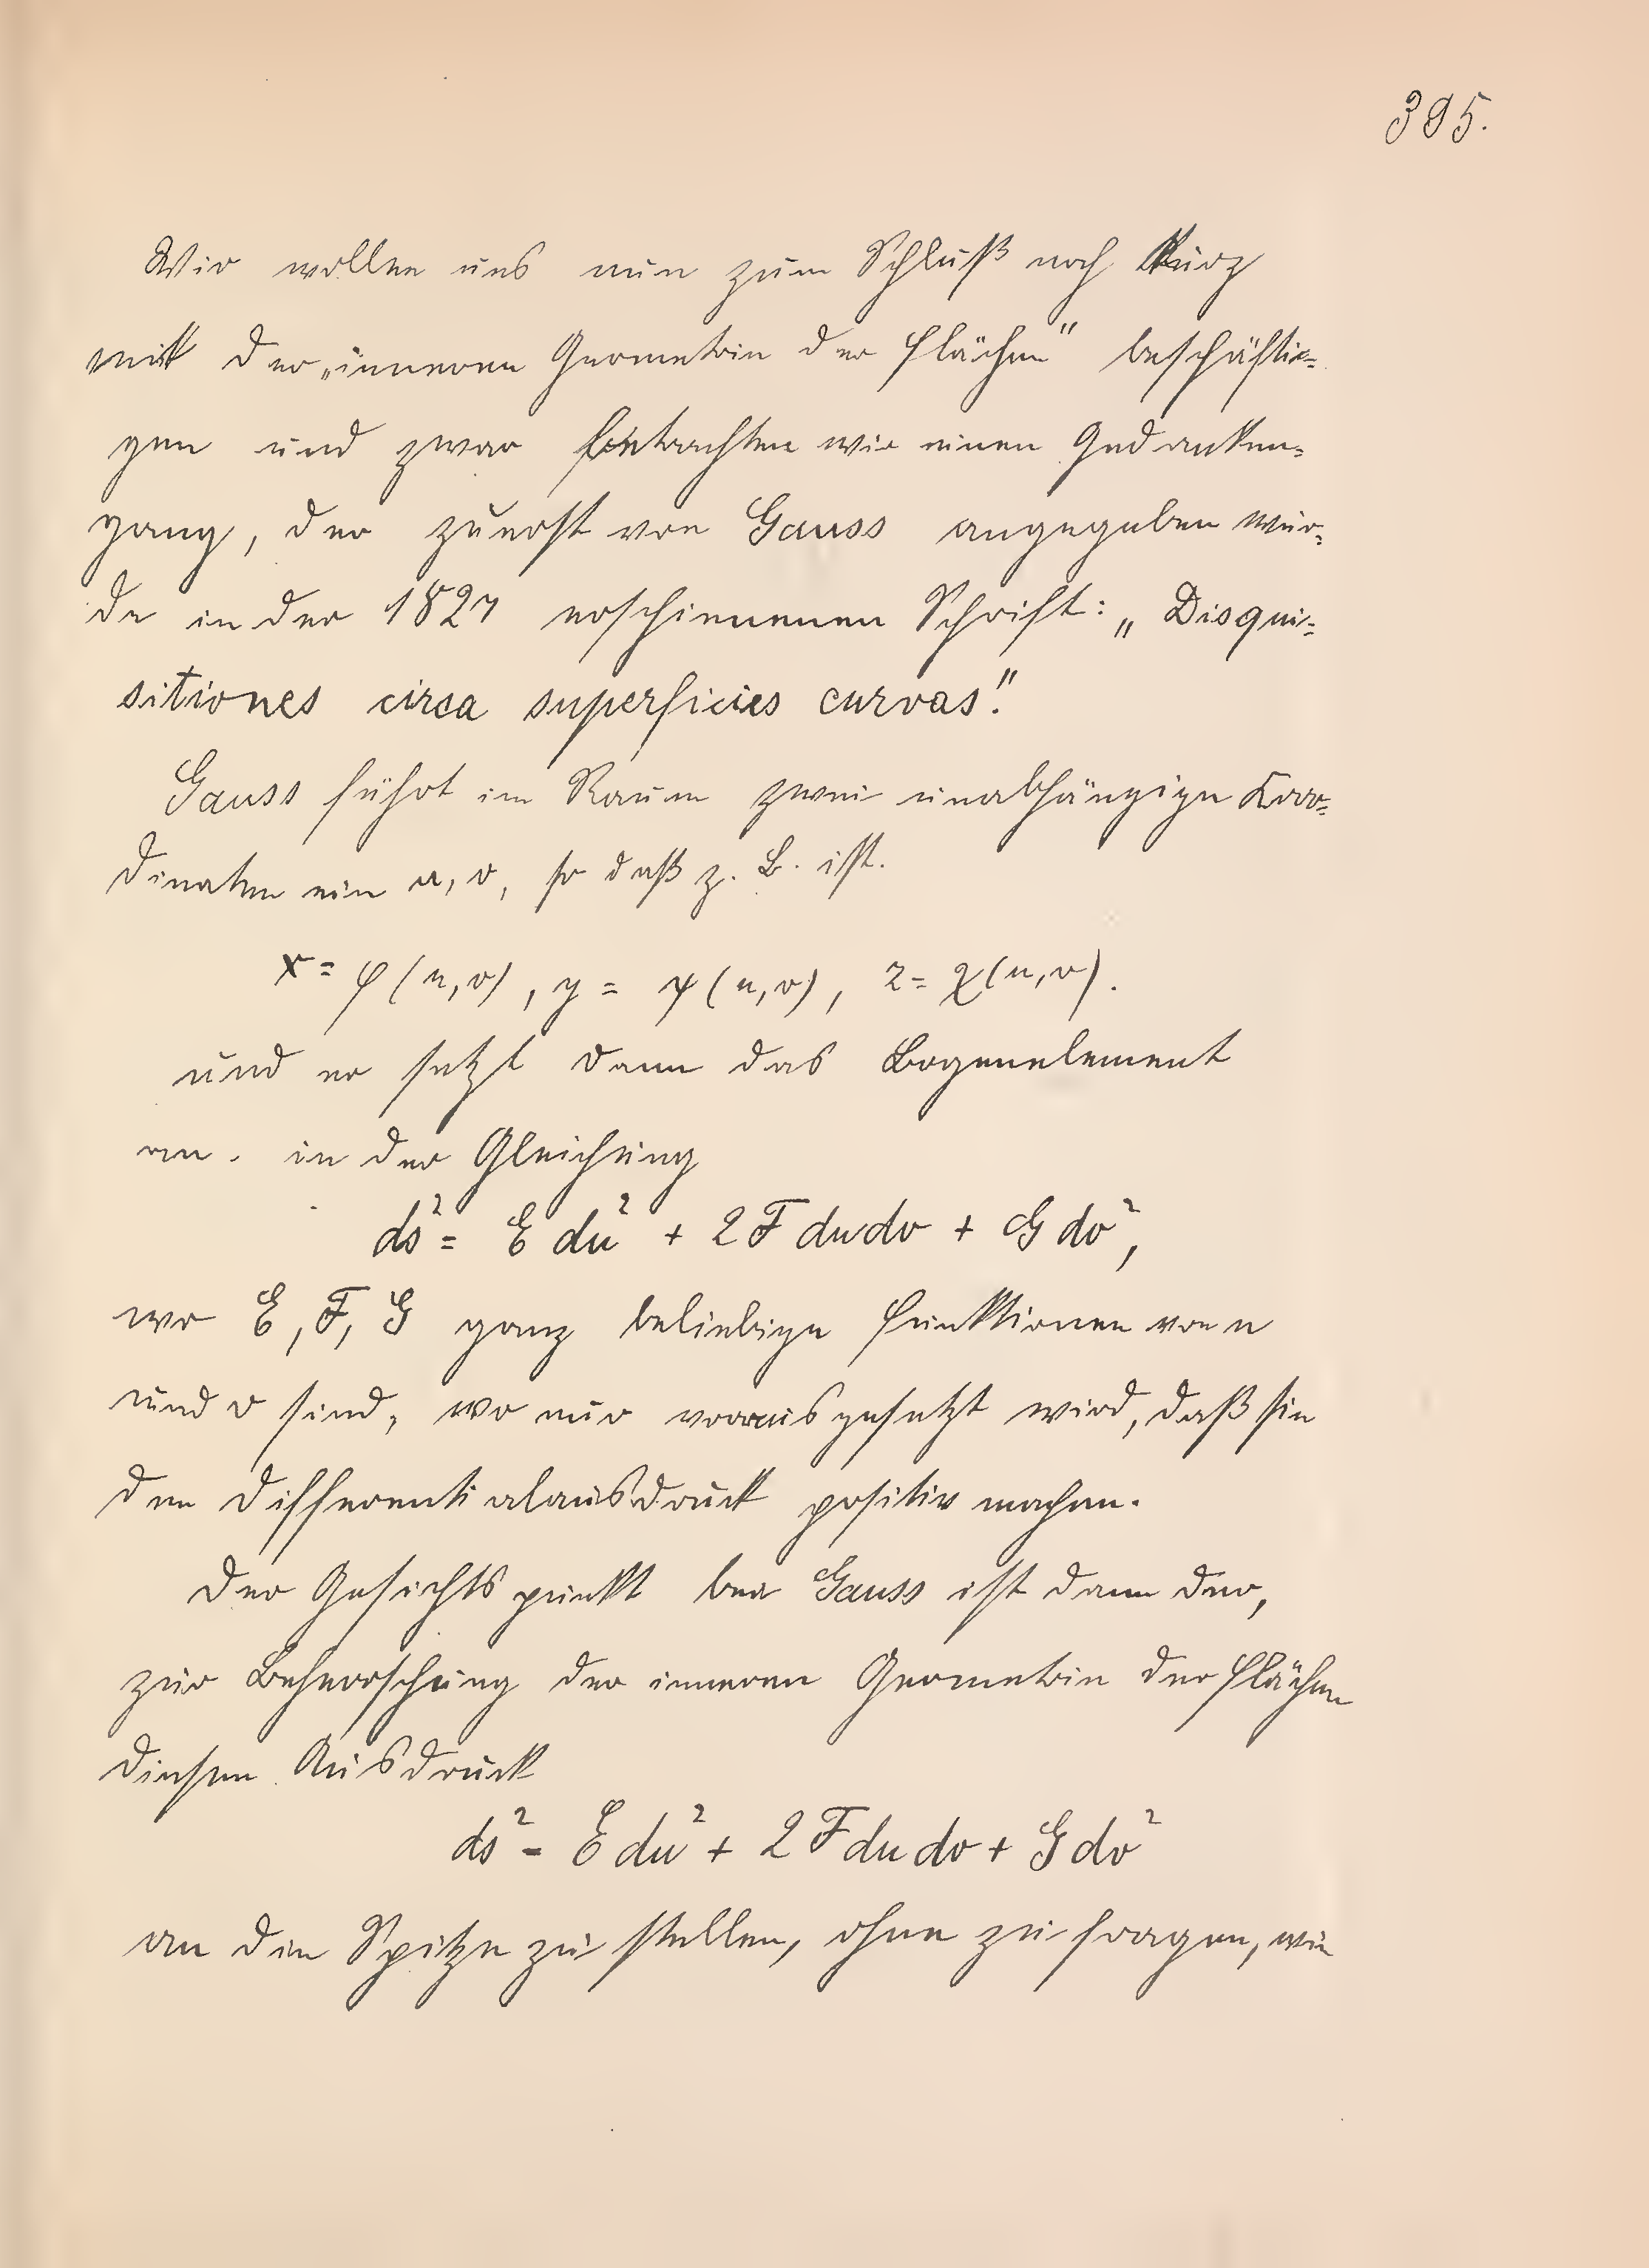 395.
Wir wollen uns nun zum Schluß noch kurz
mit der „inneren Geometrie der Flächen" beschäfti=
gen und zwar betrachten wir einen Gedanken=
gang, der zuerst von Gauss angegeben wur=
de in der 1827 erschienenen Schrift: „Disqui=
sitiones circa superficies curvas."
Gauss führt im Raum zwei unabhängige Koor=
dinaten ein u, v, so daß z. B. ist.
x = φ(u,v), y = ψ(u,v), z = χ(u,v).
und er setzt dann das Bogenelement
an. in der Gleichung
ds² = E du² + 2 F du dv + G dv²,
wo E, F, G ganz beliebige Funktionen von u
und v sind, wo nur vorausgesetzt wird, daß sie
den Differentialausdruck positiv machen.
Der Gesichtspunkt bei Gauss ist dann der,
zur Beherrschung der inneren Geometrie der Flächen
diesen Ausdruck
ds² = E du² + 2 F du dv + G dv²
an die Spitze zu stellen, ohne zu fragen, wie